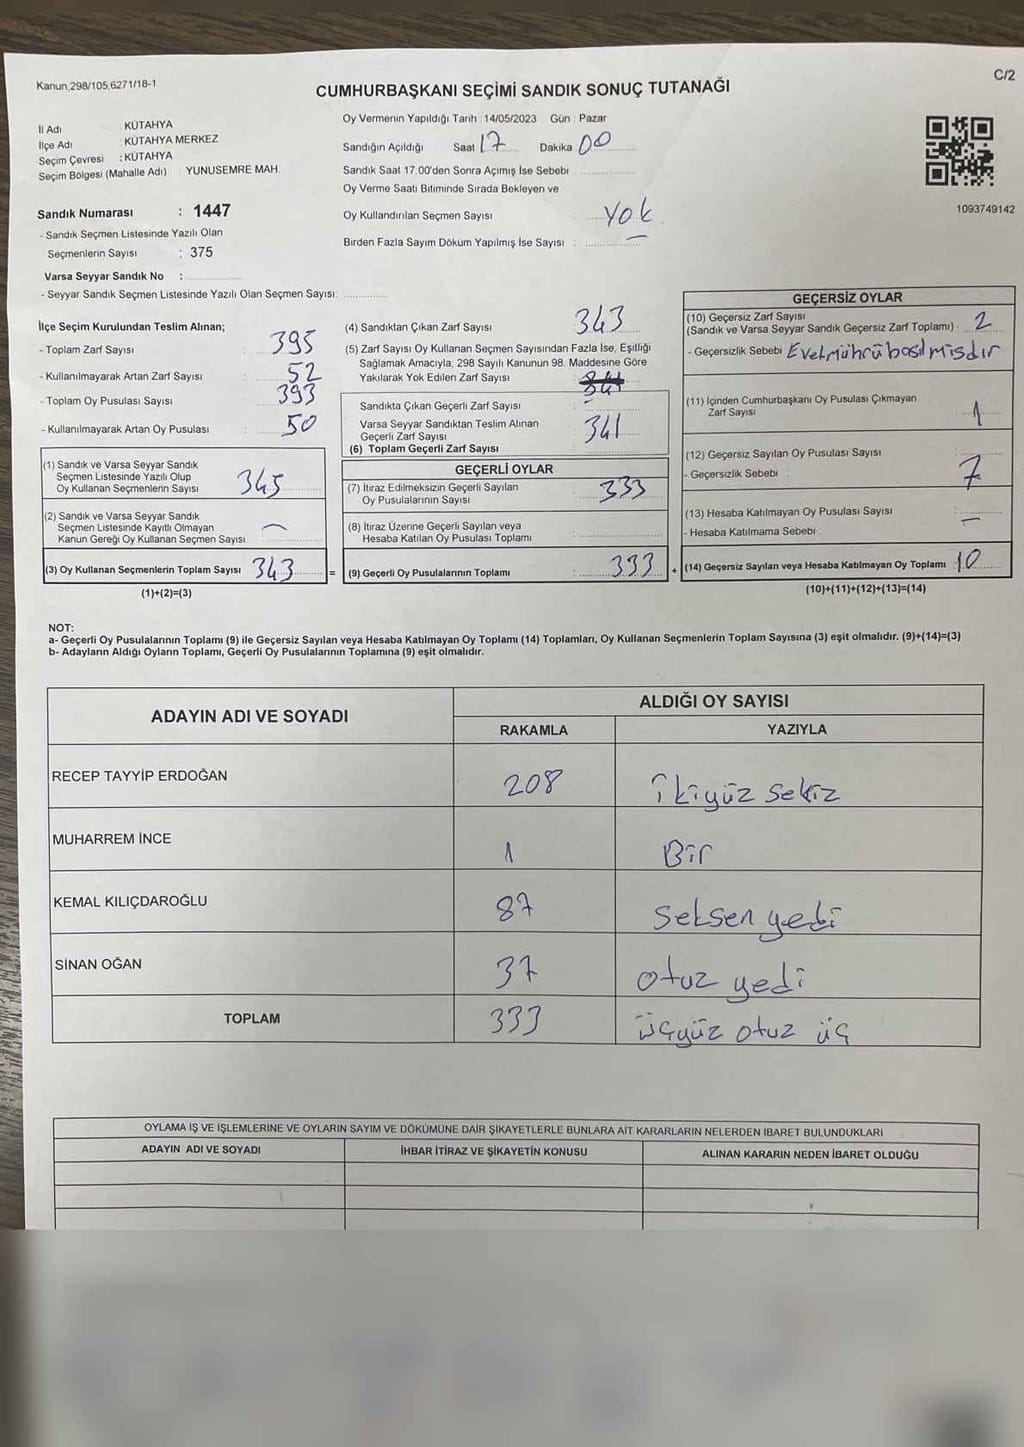 Kanun,298/105,6271/18-1
C/2
CUMHURBAŞKANI SEÇİMİ SANDIK SONUÇ TUTANAĞI
İl Adı : KÜTAHYA
İlçe Adı : KÜTAHYA MERKEZ
Seçim Çevresi : KÜTAHYA
Seçim Bölgesi (Mahalle Adı) : YUNUSEMRE MAH.
Sandık Numarası : 1447
- Sandık Seçmen Listesinde Yazılı Olan
Seçmenlerin Sayısı : 375
Varsa Seyyar Sandık No :
- Seyyar Sandık Seçmen Listesinde Yazılı Olan Seçmen Sayısı:
Oy Vermenin Yapıldığı Tarih : 14/05/2023 Gün : Pazar
Sandığın Açıldığı Saat 17 Dakika 00
Sandık Saat 17:00'den Sonra Açımış İse Sebebi
Oy Verme Saati Bitiminde Sırada Bekleyen ve
Oy Kullandırılan Seçmen Sayısı : Yok
Birden Fazla Sayım Döküm Yapılmış İse Sayısı : –
1093749142
İlçe Seçim Kurulundan Teslim Alınan;
- Toplam Zarf Sayısı : 395
- Kullanılmayarak Artan Zarf Sayısı : 52
- Toplam Oy Pusulası Sayısı : 393
- Kullanılmayarak Artan Oy Pusulası : 50
(1) Sandık ve Varsa Seyyar Sandık
Seçmen Listesinde Yazılı Olup
Oy Kullanan Seçmenlerin Sayısı 345
(2) Sandık ve Varsa Seyyar Sandık
Seçmen Listesinde Kayıtlı Olmayan
Kanun Gereği Oy Kullanan Seçmen Sayısı : –
(3) Oy Kullanan Seçmenlerin Toplam Sayısı 343
(1)+(2)=(3)
(4) Sandıktan Çıkan Zarf Sayısı : 343
(5) Zarf Sayısı Oy Kullanan Seçmen Sayısından Fazla İse, Eşitliği
Sağlamak Amacıyla, 298 Sayılı Kanunun 98. Maddesine Göre
Yakılarak Yok Edilen Zarf Sayısı
Sandıkta Çıkan Geçerli Zarf Sayısı : 341
Varsa Seyyar Sandıktan Teslim Alınan
Geçerli Zarf Sayısı
(6) Toplam Geçerli Zarf Sayısı 341
GEÇERLİ OYLAR
(7) İtiraz Edilmeksizin Geçerli Sayılan
Oy Pusulalarının Sayısı : 333
(8) İtiraz Üzerine Geçerli Sayılan veya
Hesaba Katılan Oy Pusulası Toplamı :
= (9) Geçerli Oy Pusulalarının Toplamı : 333
GEÇERSİZ OYLAR
(10) Geçersiz Zarf Sayısı
(Sandık ve Varsa Seyyar Sandık Geçersiz Zarf Toplamı) : 2
- Geçersizlik Sebebi : Evet mührü basılmışdır
(11) İçinden Cumhurbaşkanı Oy Pusulası Çıkmayan
Zarf Sayısı : 1
(12) Geçersiz Sayılan Oy Pusulası Sayısı : 7
- Geçersizlik Sebebi :
(13) Hesaba Katılmayan Oy Pusulası Sayısı : –
- Hesaba Katılmama Sebebi :
+ (14) Geçersiz Sayılan veya Hesaba Katılmayan Oy Toplamı : 10
(10)+(11)+(12)+(13)=(14)
NOT:
a- Geçerli Oy Pusulalarının Toplamı (9) ile Geçersiz Sayılan veya Hesaba Katılmayan Oy Toplamı (14) Toplamları, Oy Kullanan Seçmenlerin Toplam Sayısına (3) eşit olmalıdır. (9)+(14)=(3)
b- Adayların Aldığı Oyların Toplamı, Geçerli Oy Pusulalarının Toplamına (9) eşit olmalıdır.
ADAYIN ADI VE SOYADI ALDIĞI OY SAYISI
RAKAMLA YAZIYLA
RECEP TAYYİP ERDOĞAN 208 ikiyüz sekiz
MUHARREM İNCE 1 Bir
KEMAL KILIÇDAROĞLU 87 seksen yedi
SİNAN OĞAN 37 otuz yedi
TOPLAM 333 üçyüz otuz üç
OYLAMA İŞ VE İŞLEMLERİNE VE OYLARIN SAYIM VE DÖKÜMÜNE DAİR ŞİKAYETLERLE BUNLARA AİT KARARLARIN NELERDEN İBARET BULUNDUKLARI
ADAYIN ADI VE SOYADI İHBAR İTİRAZ VE ŞİKAYETİN KONUSU ALINAN KARARIN NEDEN İBARET OLDUĞU